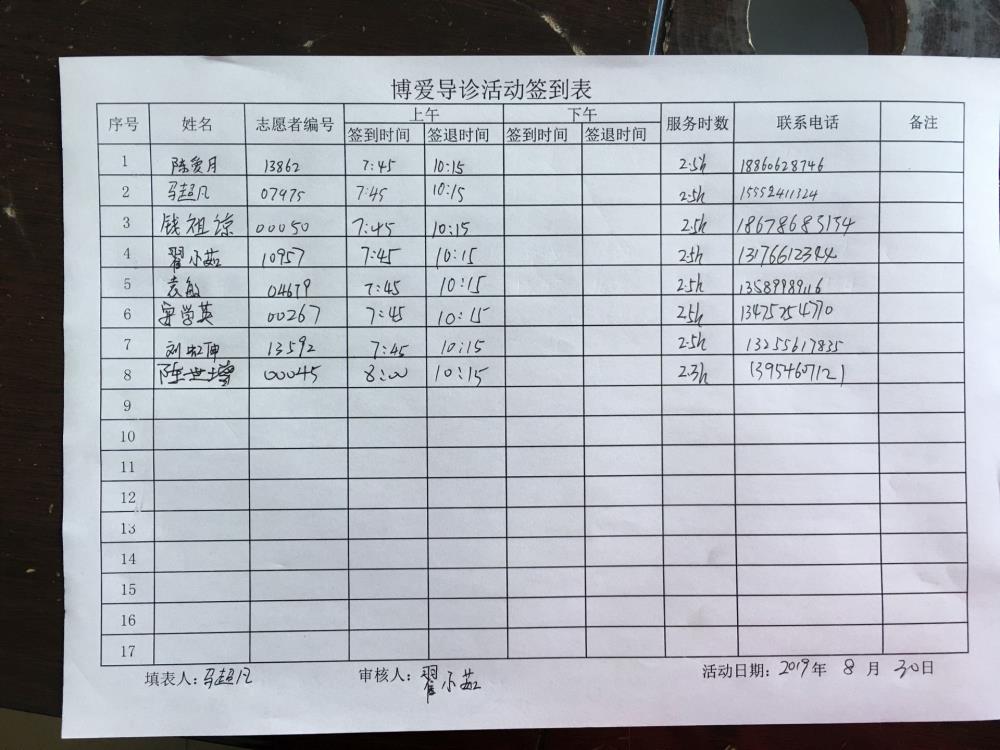 博爱导诊活动签到表
序号 姓名 志愿者编号 上午 下午 服务时数 联系电话 备注
签到时间 签退时间 签到时间 签退时间
1 陈爱月 13862 7:45 10:15 2.5h 18860628746
2 马超凡 07975 7:45 10:15 2.5h 15552411324
3 钱祖谅 00050 7:45 10:15 2.5h 18678685154
4 翟小茹 10957 7:45 10:15 2.5h 13176612344
5 袁敏 04679 7:45 10:15 2.5h 13589989116
6 宋学英 00267 7:45 10:15 2.5h 13475254770
7 刘 13592 7:45 10:15 2.5h 13255617835
8 陈世增 00045 8:00 10:15 2.3h 13954607121
9
10
11
12
13
14
15
16
17
填表人:马超凡 审核人:翟小茹 活动日期:2019年 8 月 30日